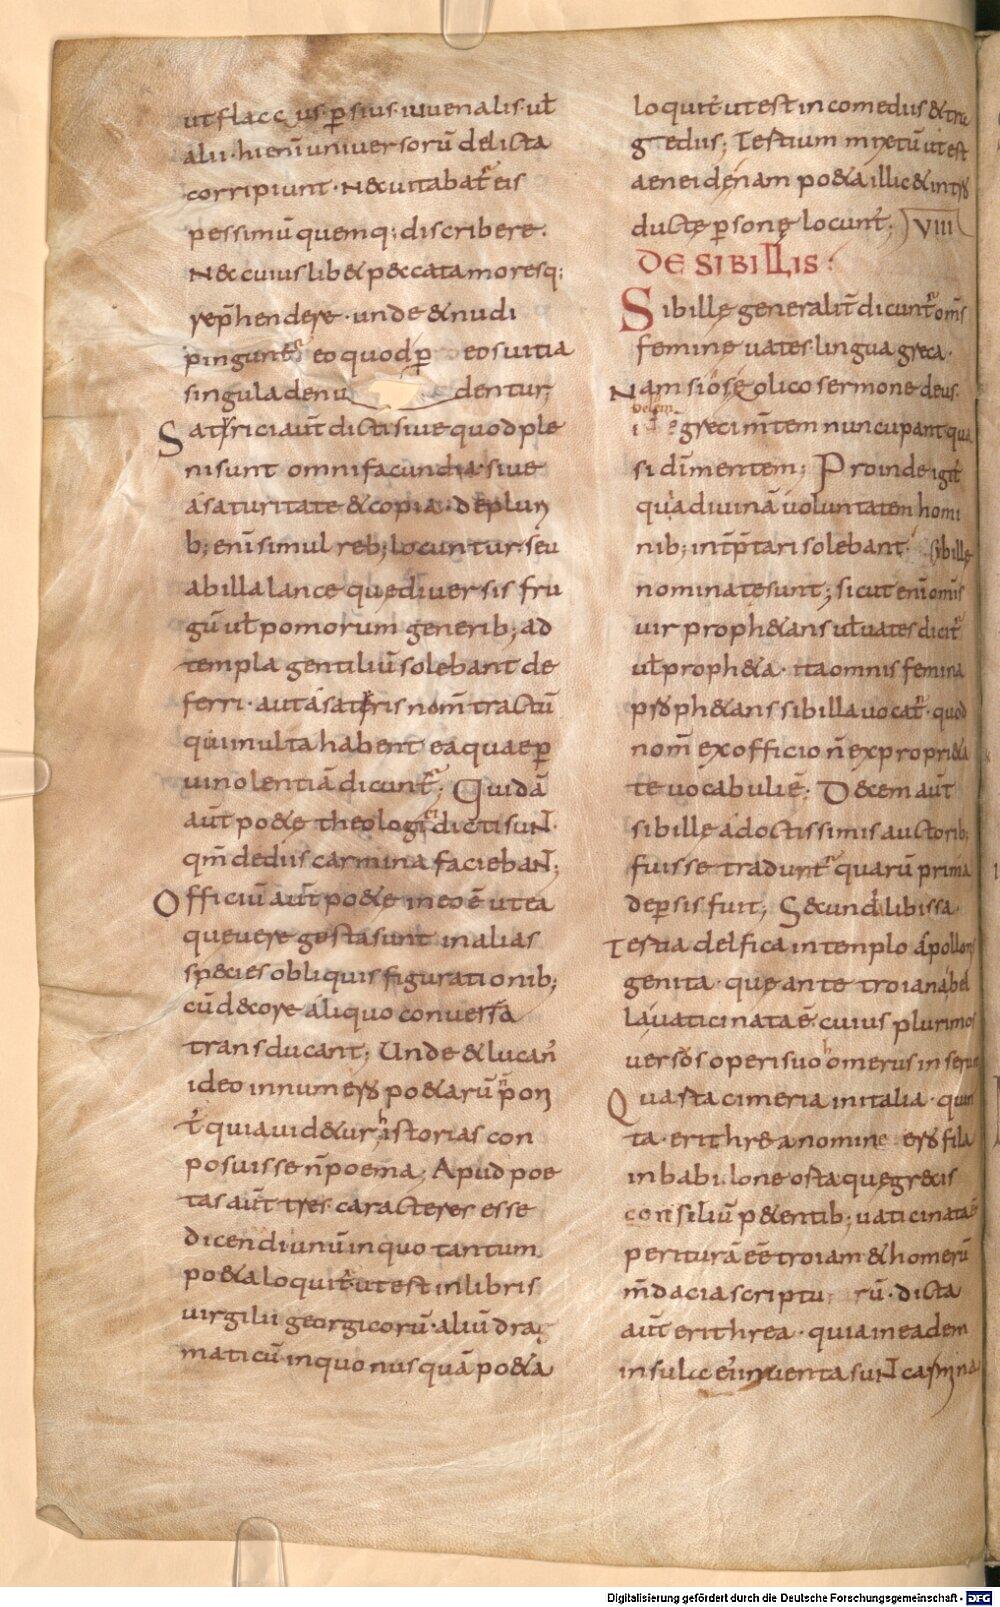 ut flaccus· ꝑsius· iuuenalis· uł
alii· hienī uniuersorū delicta
corripiunt· N&uitabat᷑ eis
pessimū quemq; discribere·
N&cuiuslib& p&cata moresq;
rep̄hendere· unde & nudi
pingunt᷑ eo quod ꝑ eos uitia
singula denu dentur;
Satirici aūt dicti siue quod ple
ni sunt omni facundia· siue
a saturitate & copia· deplurı
b; enī simul reb; locuntur· seu
ab illa lance que diuersis fru
gū uł pomorum generib; ad
templa gentiliū solebant de
ferri· aut a satiris nom̄ tractū
qui inulta habent ea quae ꝑ
uinolentiā dicunt᷑; Quidā
aūt po&e theologi dicti suNT·
qm̄ de diis carmina faciebaNT;
Officiū aūt po&e in eo ē ut ea
que uere gesta sunt in alias
species obliquis figurationib;
cū d&core aliquo conuersa
transducant; Unde & lucan᷒
ideo in numero po&arū n̄ pon
t᷑ quia uid&ur historias con
posuisse n̄ poema; Apud poe
tas aūt tres caracteres esse
dicendi unū in quo tantum
po&a loquit᷑· ut est in libris
uirgilii georgicorū· aliū drag
maticū· in quo nusquā po&a
loquit᷑ ut est in comediis & tra
gediis; Tertium mixtū ut est
aeneide· nam po&a illic & intro
ducte ꝑsone locunt᷑; VIII
DE SIBILLIS·
Sibille generalit̄ dicunt᷑ om̄s
femine uates lingua greca·
Nam sios eolico sermone deus·
belem greci m̄tem nuncupant qua
si dī mentem; Proinde igit᷑
quia diuinā uoluntatem homi
nib; int̄p̄tari solebant· sibille
nominate sunt; sicut enī omīs
uir proph&ans uł uates dicit᷑
uł proph&a· ita omnis femina
proph&ans sibilla uocat᷑· quod
nom̄ ex officio n̄ ex propri&a
te uocabuli ē; D&cem aūt
sibille a doctissimis auctorib;
fuisse tradunt᷑ quarū prima
de ꝑsis fuit; S&cunda libissa·
Tertia delfica in templo apollonis
genita· que ante troiana bel
la uaticinata ē· cuius plurimos
uersos operi suo homerus inseruit
Quarta cimeria in italia· quin
ta· erithrea nomine erofila
in babilone orta que grecis
consiliū p&entib; uaticinata ē
periturā eē troiam & homerū
m̄dacia scripturū· dicta
aūt erithrea· quia in eadem
insula ei᷒ inuenta suNT carmina
Digitalisierung gefördert durch die Deutsche Forschungsgemeinschaft - DFG